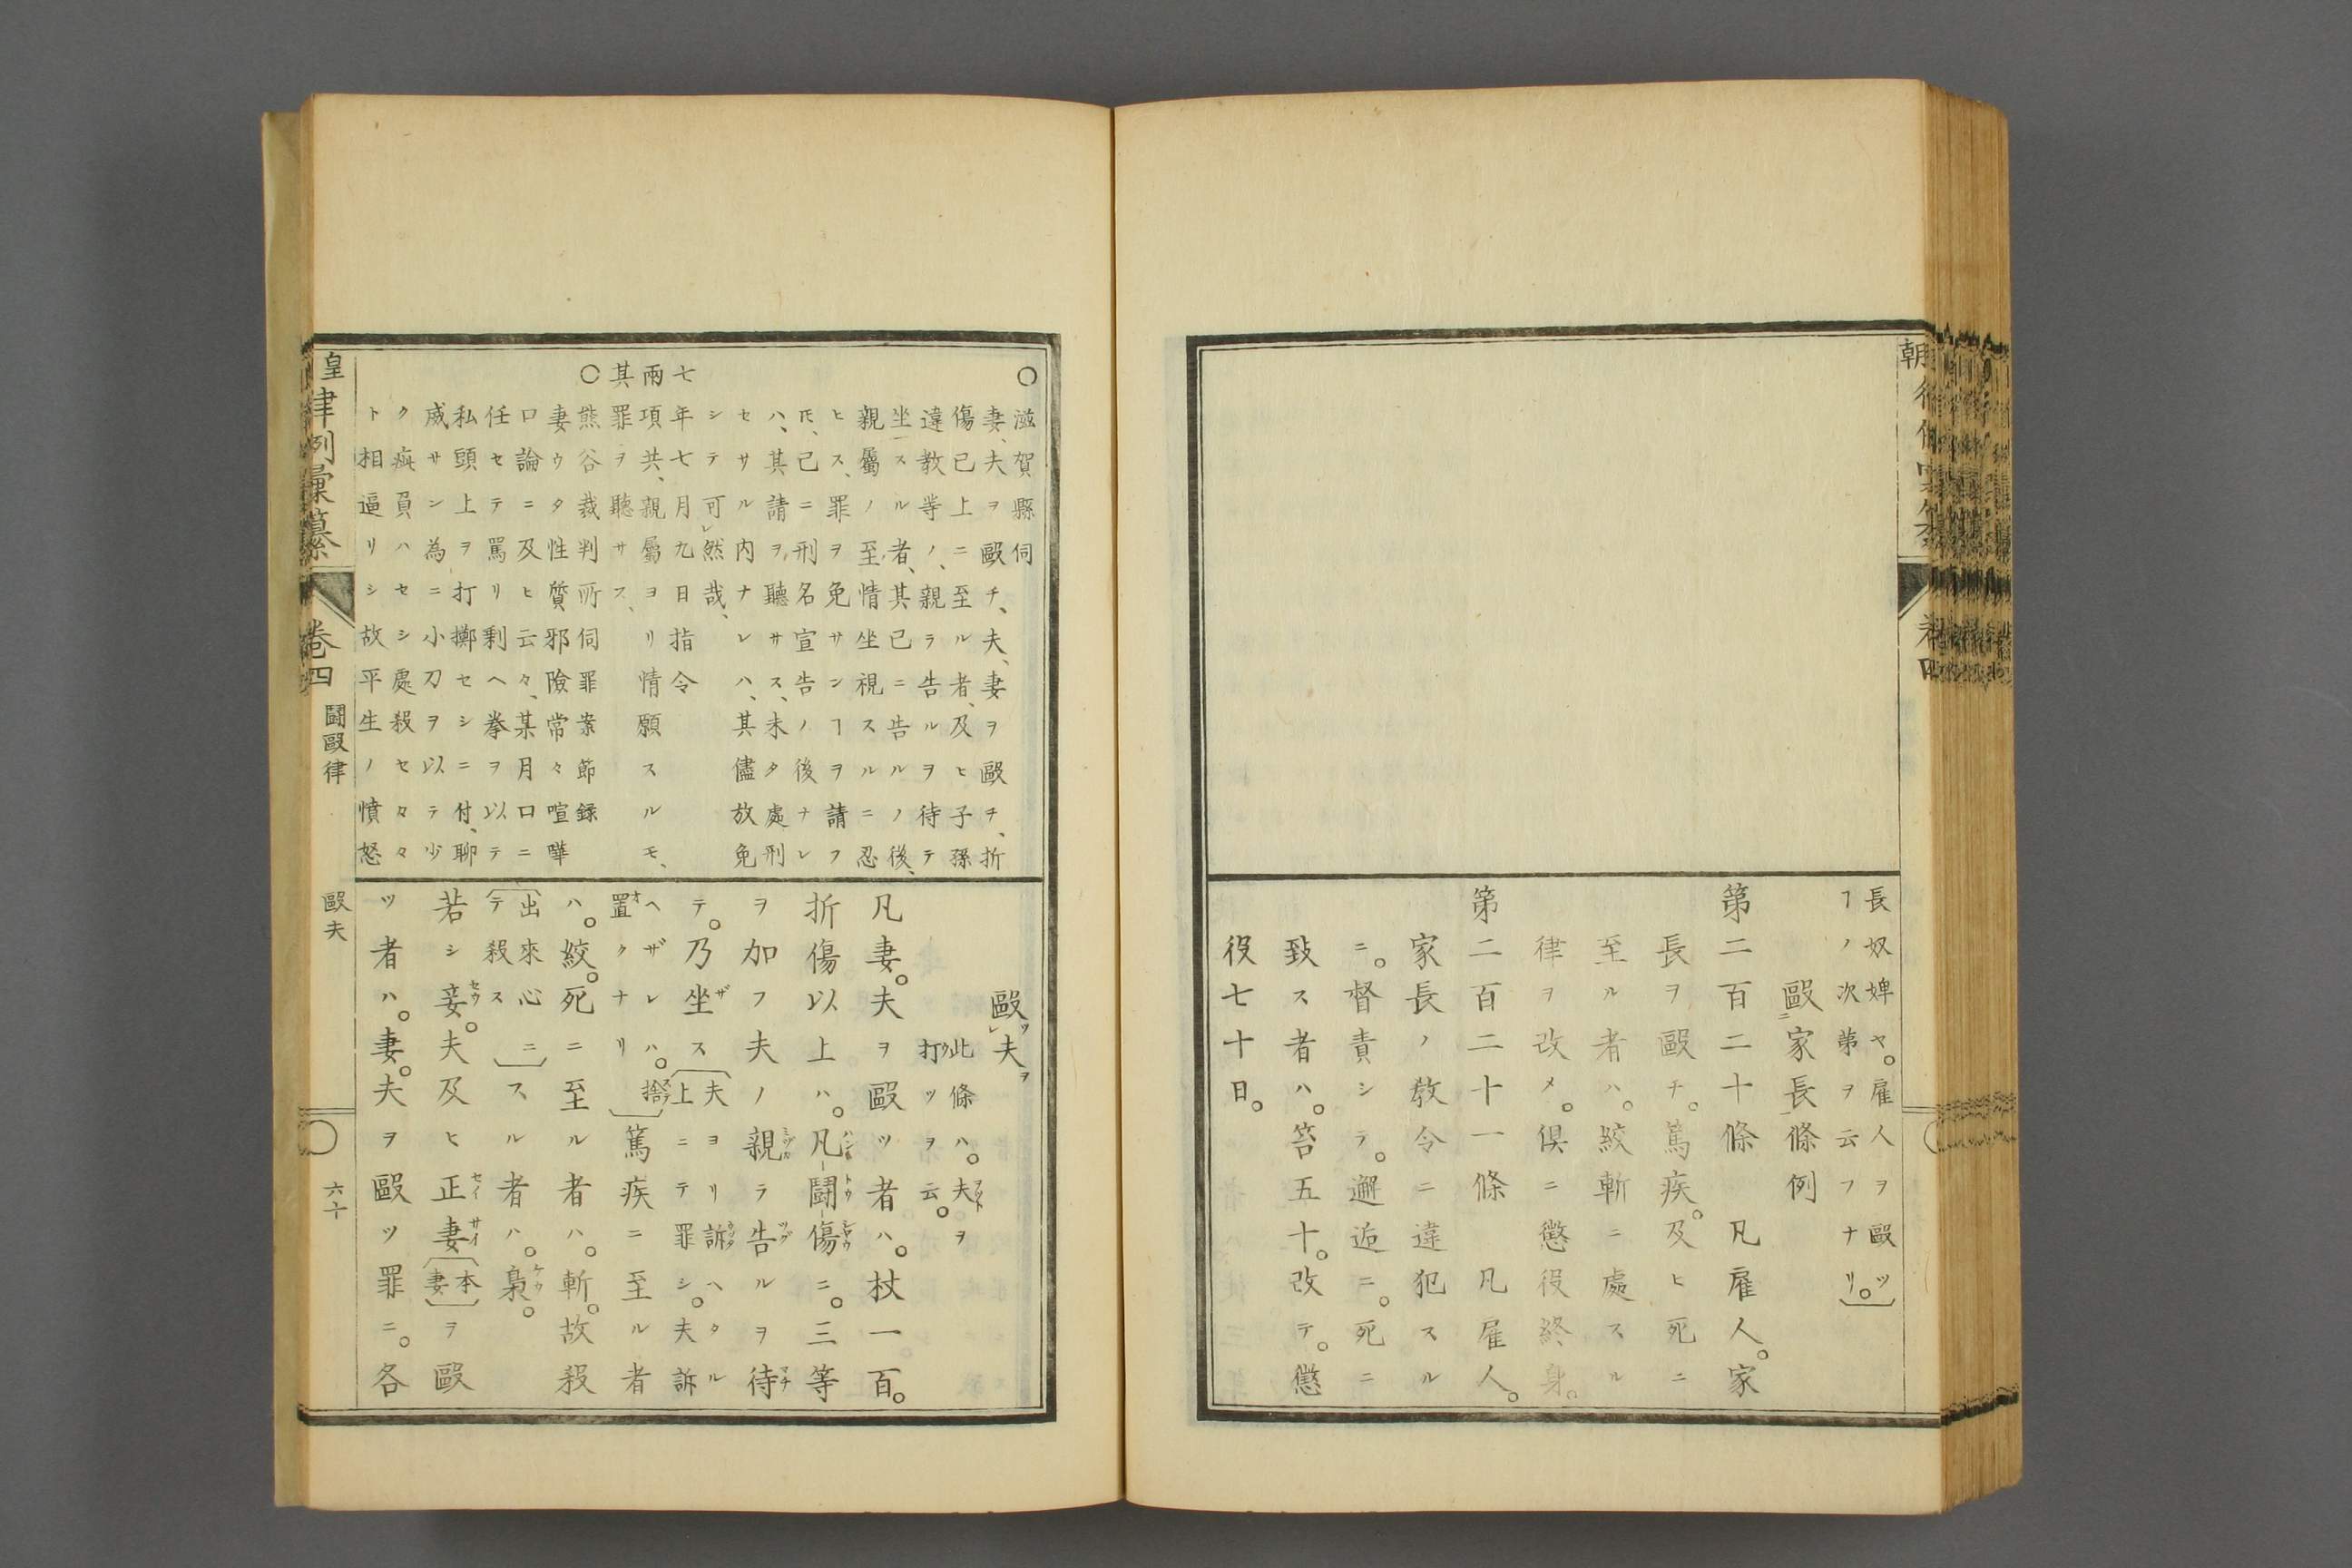 長奴婢ヤ。雇人ヲ毆ツ
ヿノ次第ヲ云フナリ。
毆家長條例
第二百二十條　凡雇人。家
長ヲ毆チ。篤疾。及ヒ死ニ
至ル者ハ。絞斬ニ處スル
律ヲ改メ。倶ニ懲役終身。
第二百二十一條　凡雇人。
家長ノ教令ニ違犯スル
ニ。督責シテ。邂逅ニ。死ニ
致ス者ハ。笞五十。改テ。懲
役七十日。
○滋賀縣伺
妻、夫ヲ毆チ、夫、妻ヲ毆チ、折
傷已上ニ至ル者、及ヒ子孫
違教等ノ、親ラ告ルヲ待テ
坐スル者、其已ニ告ルノ後、
親屬ノ至情坐視スルニ忍
ヒス、罪ヲ免サンヿヲ請フ
𪜈、已ニ刑名宣告ノ後ナレ
ハ、其請ヲ聽サス、未タ處刑
セサル内ナレハ、其儘放免
シテ可レ然哉、
七年七月九日指令
兩項共、親屬ヨリ情願スルモ、
其罪ヲ聽サス、
○熊谷裁判所伺罪案節録
妻ウタ性質邪險常々喧嘩
口論ニ及ヒ云々、某月口ニ
任セテ罵リ剩ヘ拳ヲ以テ
私頭上ヲ打擲セシニ付、聊
威サン為ニ小刀ヲ以テ少
ク疵負ハセシ處殺セ々々
ト相逼リシ故平生ノ憤怒
毆レ夫ヲ
此條ハ。夫ヲ
打ツヲ云。
凡妻。夫ヲ毆ツ者ハ。杖一百。
折傷以上ハ。凡鬪傷ニ。三等
ヲ加フ夫ノ親ラ告ルヲ待
テ。乃坐ス夫ヨリ訴ヘタル
上ニテ罪シ。夫訴
ヘザレハ。捨
置クナリ篤疾ニ至ル者
ハ。絞。死ニ至ル者ハ。斬。故殺
出來心ニ
テ殺ススル者ハ。梟。
若シ妾。夫及ヒ正妻本
妻ヲ毆
ツ者ハ。妻。夫ヲ毆ツ罪ニ。各
皇律例彙纂　卷四　鬪毆律　毆夫　六十